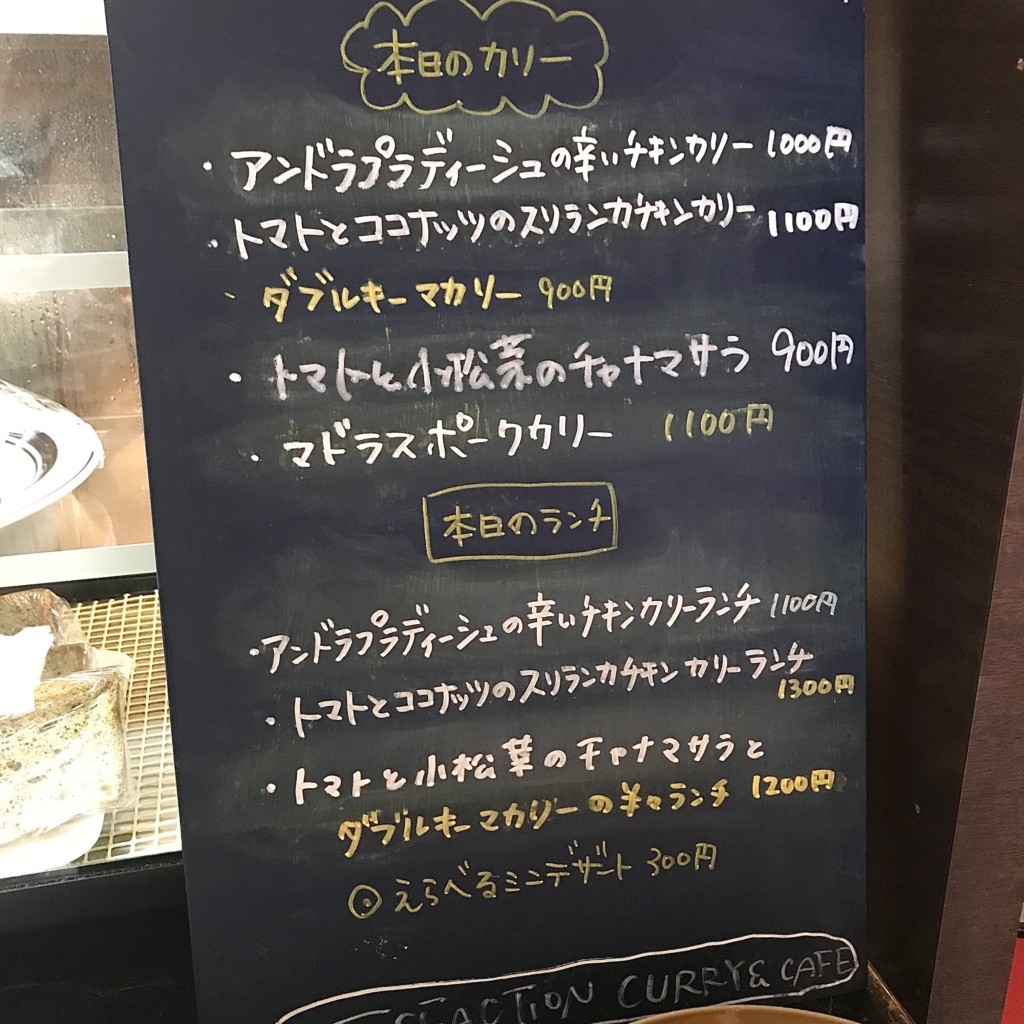 本日のカリー
・アンドラプラディーシュの辛いチキンカリー 1000円
・トマトとココナッツのスリランカチキンカリー 1100円
・ダブルキーマカリー 900円
・トマトと小松菜のチャナマサラ 900円
・マドラスポークカリー 1100円
本日のランチ
・アンドラプラディーシュの辛いチキンカリーランチ 1100円
・トマトとココナッツのスリランカチキンカリーランチ
1300円
・トマトと小松菜のチャナマサラと
ダブルキーマカリーのランチ 1200円
◎えらべるミニデザート 300円
CURRY & CAFE